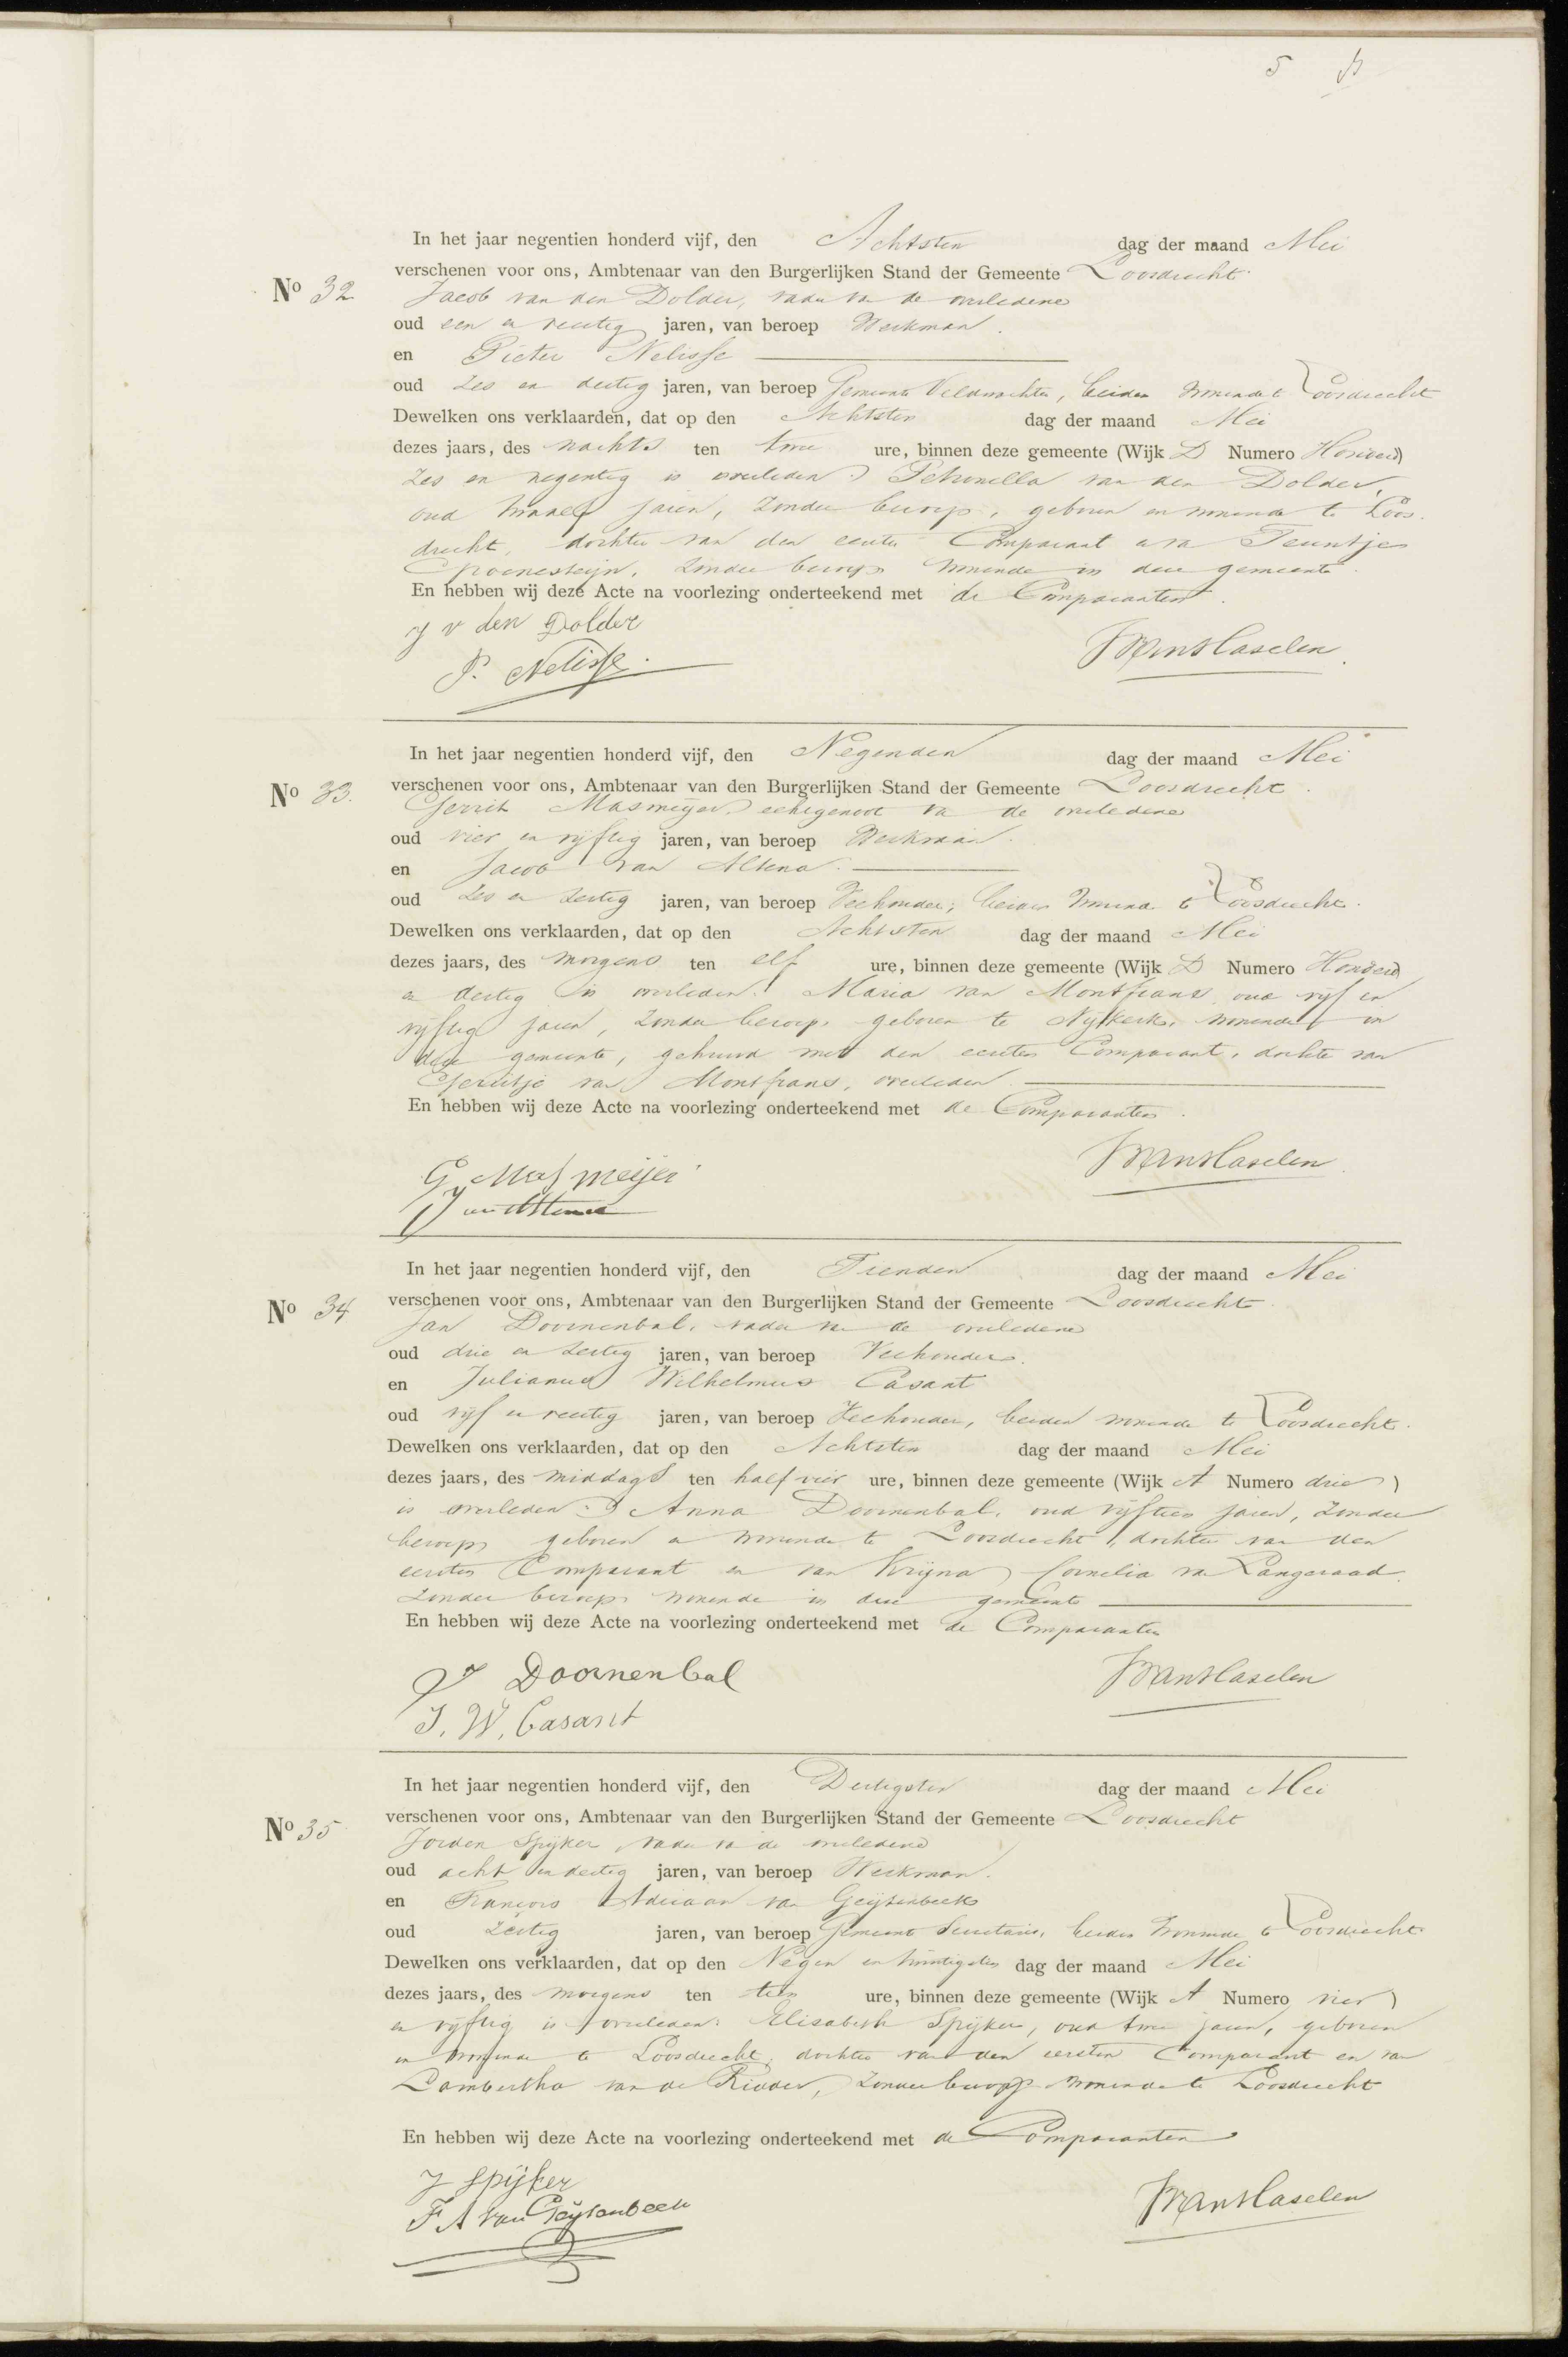 5
In het jaar negentien honderd vijf, den Achtsten dag der maand Mei
verschenen voor ons, Ambtenaar van den Burgerlijken Stand der Gemeente Loosdrecht.
No 32 Jacob van den Dolder, vader va de overledene
oud een en veertig jaren, van beroep Werkman.
en Pieter Nelisse
oud zes en dertig jaren, van beroep Gemeente Veldwachter, beiden wonende te Loosdrecht
Dewelken ons verklaarden, dat op den Achtsten dag der maand Mei
dezes jaars, des nachts ten twee ure, binnen deze gemeente (Wijk D Numero Honderd)
zes en negentig is overleden: Petronella van den Dolder,
oud twaalf jaren, zonder beroep, geboren en wonende te Loos
drecht, dochter van den eersten Comparant en van Teuntje
zonder beroep wonende in deze gemeente.
En hebben wij deze Acte na voorlezing onderteekend met de Comparanten.
J v den Dolder
P. Nelisse.
In het jaar negentien honderd vijf, den Negenden dag der maand Mei
verschenen voor ons, Ambtenaar van den Burgerlijken Stand der Gemeente Loosdrecht.
No 33. Gerrit Masmeijer, echtgenoot va de overledene
oud vier en vijftig jaren, van beroep Werkman.
en Jacob van Altena.
oud zes en zestig jaren, van beroep Veehouder, beiden wonende te Loosdrecht.
Dewelken ons verklaarden, dat op den Achtsten dag der maand Mei
dezes jaars, des morgens ten elf ure, binnen deze gemeente (Wijk D Numero Honderd)
en dertig is overleden: Maria van Montfrans oud vijf en
vijftig jaren, zonder beroep, geboren te Nijkerk, wonende in
deze gemeente, gehuwd met den eersten Comparant, dochter van
Gerritje van Montfrans, overleden
En hebben wij deze Acte na voorlezing onderteekend met de Comparanten.
G Masmeijer
J van Altena
In het jaar negentien honderd vijf, den Tienden dag der maand Mei
verschenen voor ons, Ambtenaar van den Burgerlijken Stand der Gemeente Loosdrecht.
No 34 Jan Doornenbal, vader va de overledene
oud drie en zestig jaren, van beroep Veehouder.
en Julianus Wilhelmus Casant
oud vijf en veertig jaren, van beroep Veehouder, beiden wonende te Loosdrecht.
Dewelken ons verklaarden, dat op den Achtsten dag der maand Mei
dezes jaars, des middags ten half vier ure, binnen deze gemeente (Wijk A Numero drie)
is overleden: Anna Doornenbal, oud vijftien jaren, zonder
beroep, geboren en wonende te Loosdrecht, dochter van den
eersten Comparant en van Krijna Cornelia va Langeraad.
zonder beroep wonende in deze gemeente
En hebben wij deze Acte na voorlezing onderteekend met de Comparanten
J Doornenbal
J. W. Casant
In het jaar negentien honderd vijf, den Dertigsten dag der maand Mei
verschenen voor ons, Ambtenaar van den Burgerlijken Stand der Gemeente Loosdrecht
No 35 Jorden Spijker, vader va de overledene
oud acht en dertig jaren, van beroep Werkman.
en François Adriaan van Geijtenbeek
oud zestig jaren, van beroep Gemeente Secretaris, beiden wonende te Loosdrecht
Dewelken ons verklaarden, dat op den Negen en twintigsten dag der maand Mei
dezes jaars, des morgens ten tien ure, binnen deze gemeente (Wijk A Numero vier)
en vijftig is overleden: Elisabeth Spijker, oud twee jaren, geboren
en wonende te Loosdrecht, dochter van den eersten Comparant en van
Lambertha van de Ridder, zonder beroep wonende te Loosdrecht
En hebben wij deze Acte na voorlezing onderteekend met de Comparanten
J Spijker
F A van Geijtenbeek